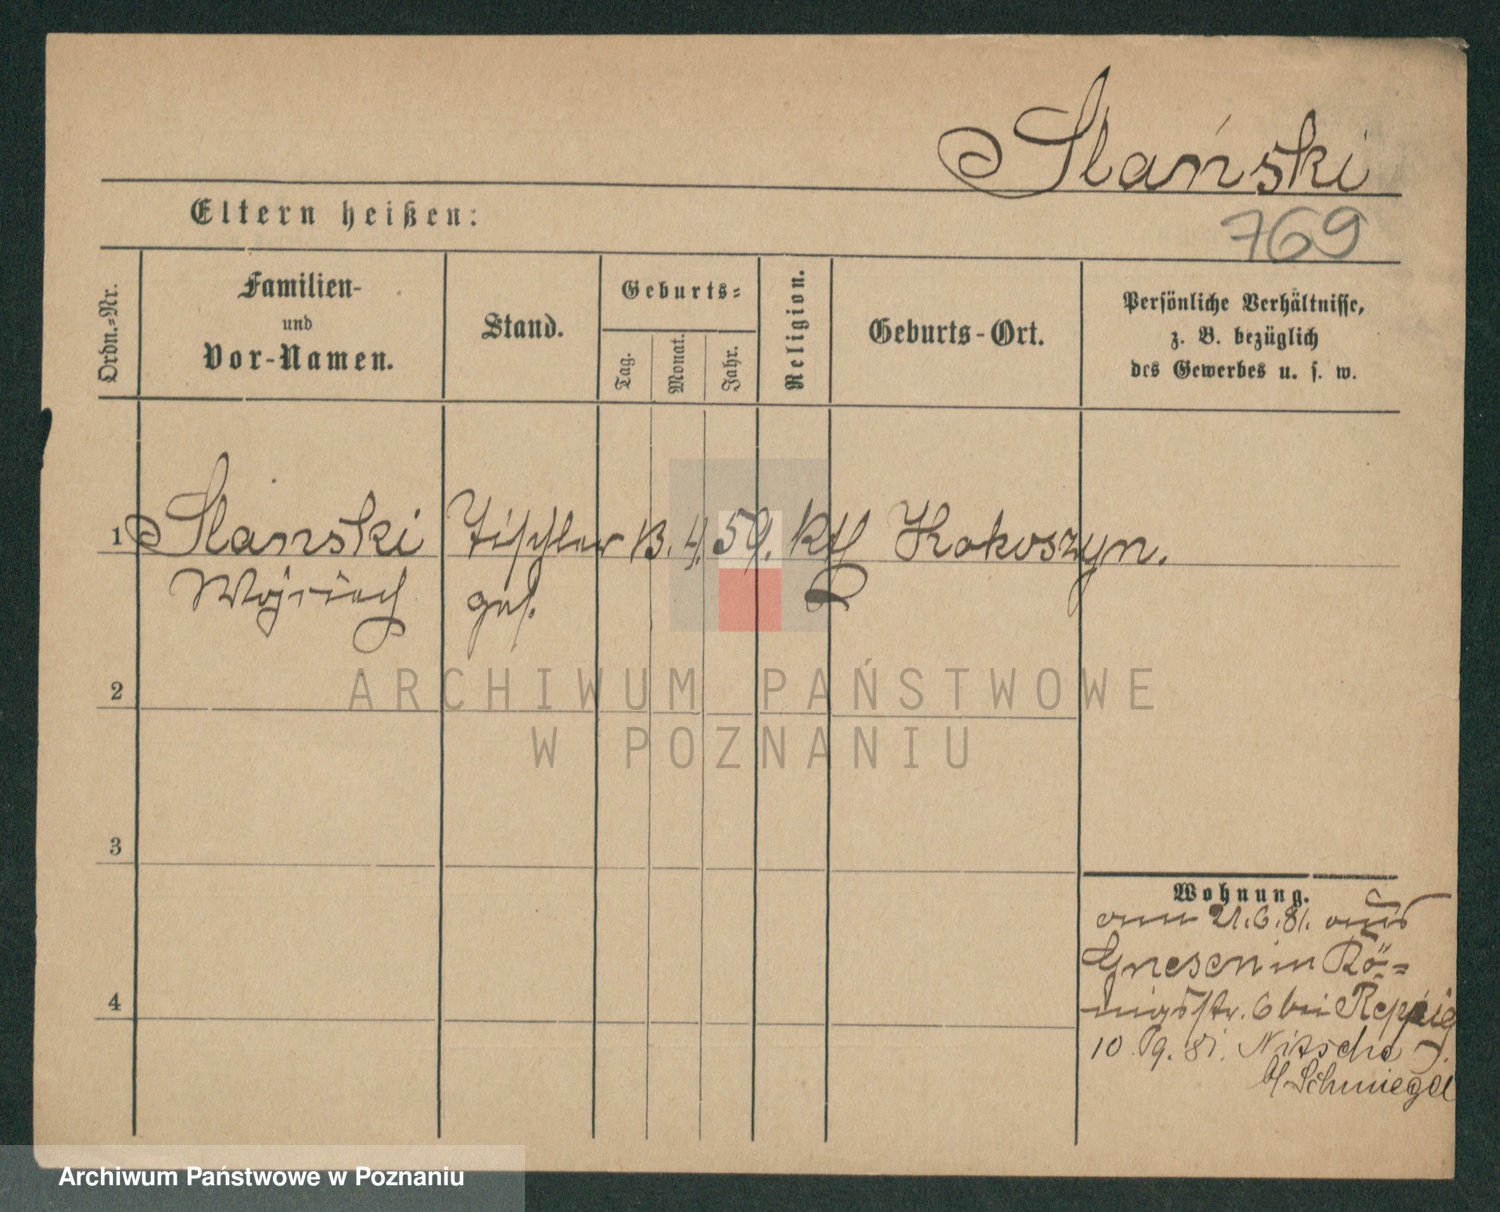 Slański
Eltern heißen:
769
Ordn.-Nr.
Familien-
und
Vor-Namen.
Stand.
Geburts-
Tag.
Monat.
Jahr.
Religion.
Geburts-Ort.
Persönliche Verhältnisse,
z. B. bezüglich
des Gewerbes u. s. w.
1 Slański Tischler 13. 4. 59. ktl Kokoszyn.
Wojciech ges.
2
3
4
Wohnung.
am 21.6.81. aus
Gnesen in Kö-
nigsstr. 6 bei
10 9. 81. Nitsche
b/ Schmiegel
ARCHIWUM PAŃSTWOWE
W POZNANIU
Archiwum Państwowe w Poznaniu